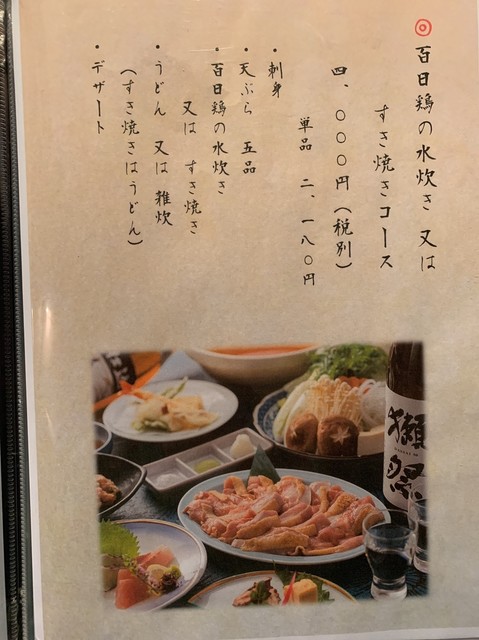 ◎百日鶏の水炊き 又は
すき焼きコース
四、〇〇〇円(税別)
単品 二、一八〇円
・刺身
・天ぷら 五品
・百日鶏の水炊き
又は すき焼き
・うどん 又は 雑炊
(すき焼きはうどん)
・デザート
獺祭